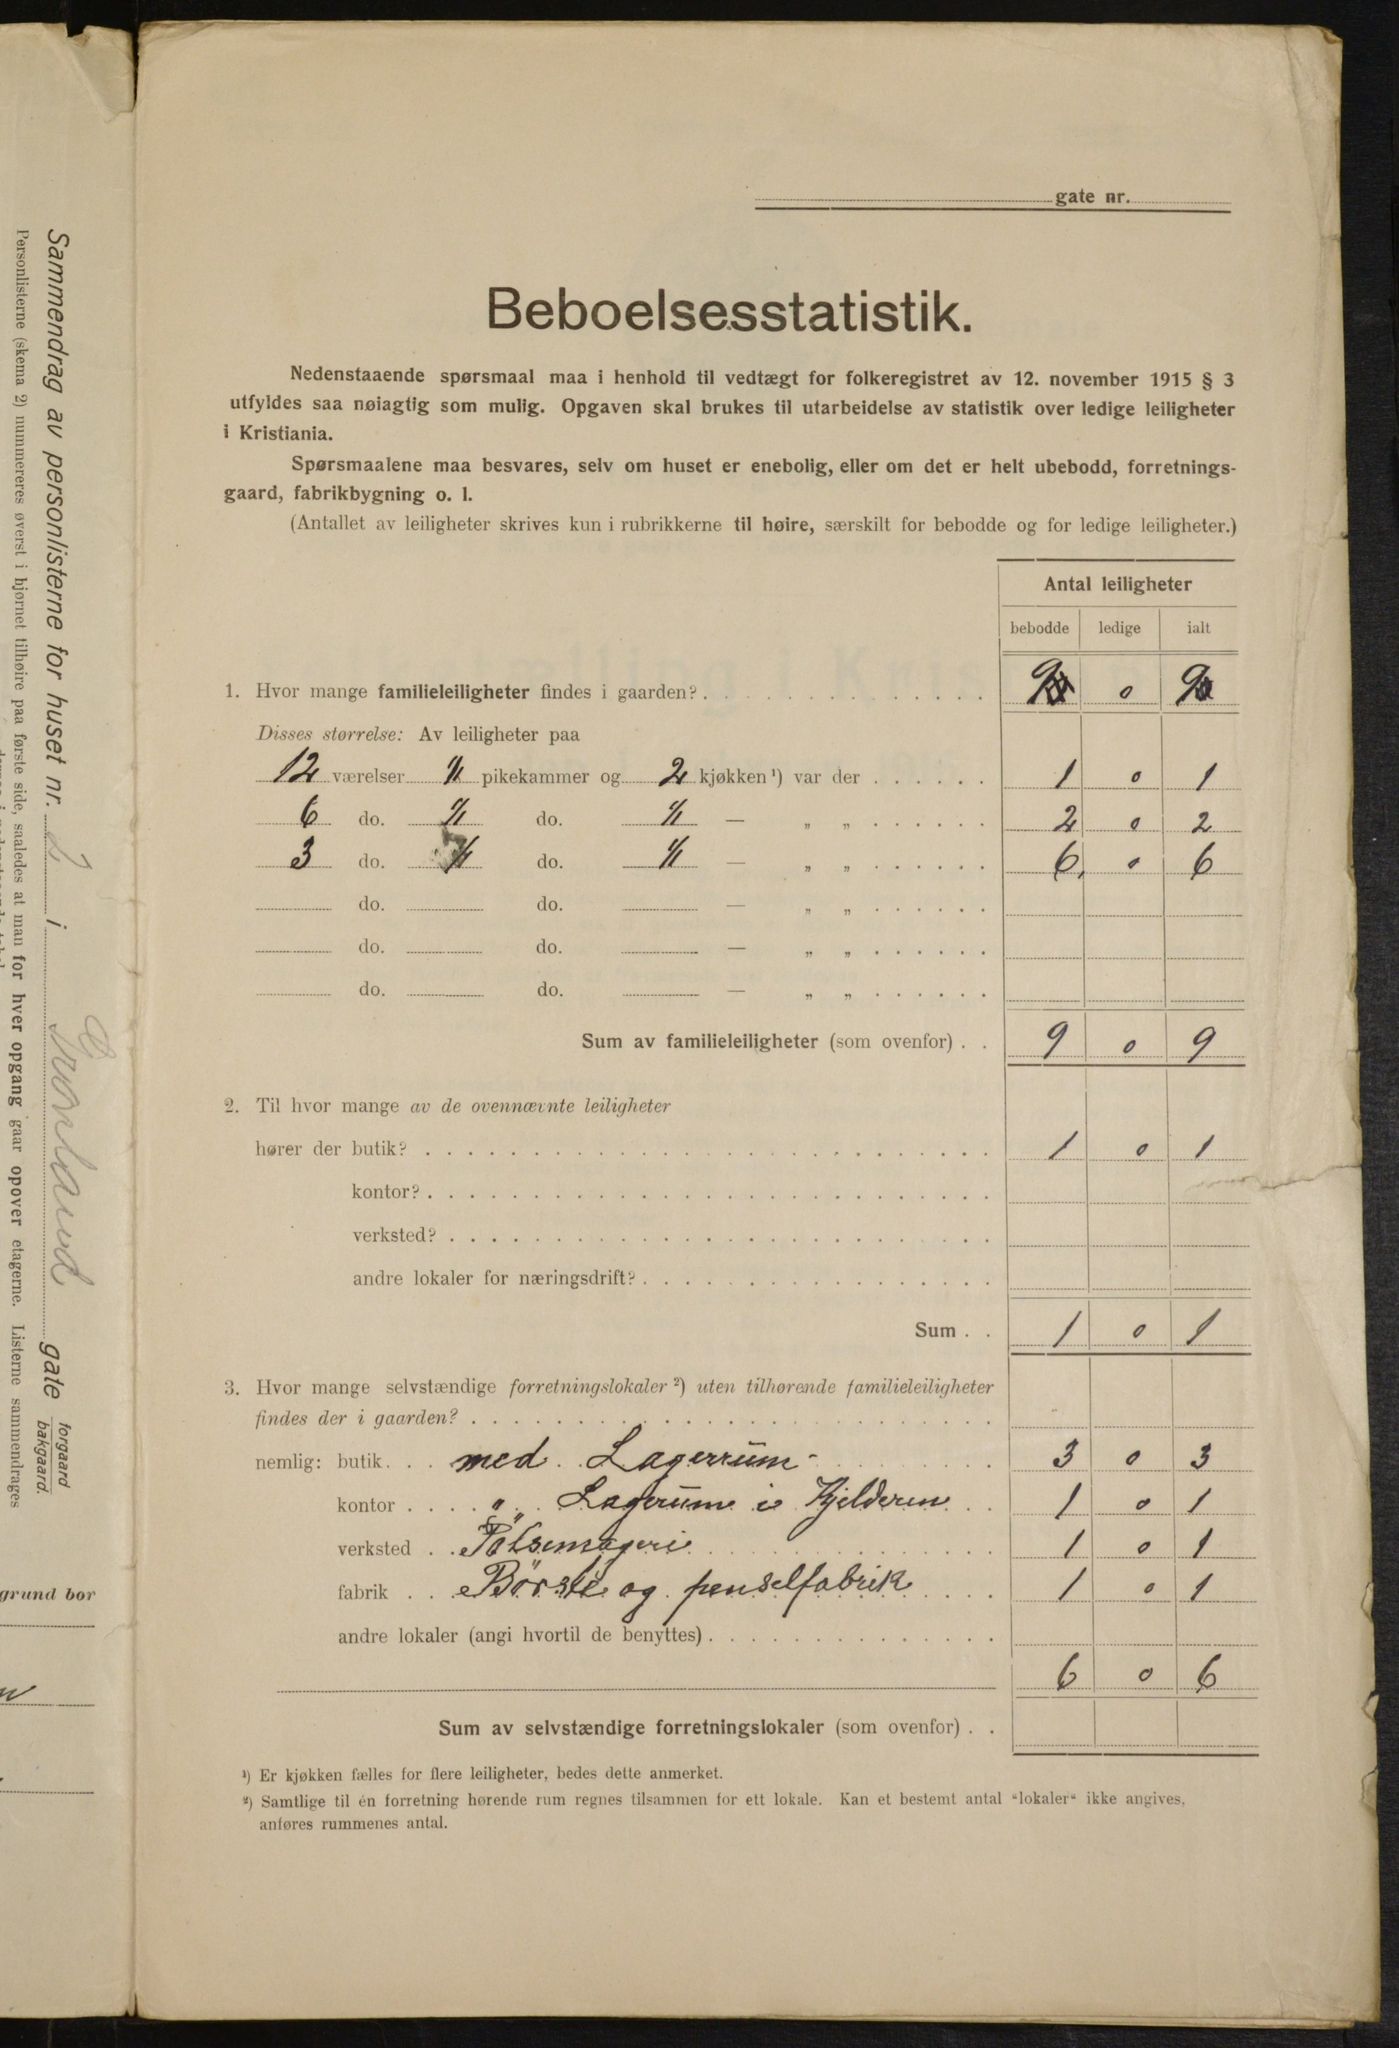 gate nr.
Beboelsesstatistik.
Nedenstaaende spørsmaal maa i henhold til vedtægt for folkeregistret av 12. november 1915 § 3
utfyldes saa nøiagtig som mulig. Opgaven skal brukes til utarbeidelse av statistik over ledige leiligheter
i Kristiania.
Spørsmaalene maa besvares, selv om huset er enebolig, eller om det er helt ubebodd, forretnings-
gaard, fabrikbygning o. l.
(Antallet av leiligheter skrives kun i rubrikkerne til høire, særskilt for bebodde og for ledige leiligheter.)
Antal leiligheter
bebodde ledige ialt
1. Hvor mange familieleiligheter findes i gaarden? 9 0 9
Disses størrelse: Av leiligheter paa
12 værelser " pikekammer og 2 kjøkken ¹) var der 1 0 1
6 do. " do. " — „ „ 2 0 2
3 do. " do. " — „ „ 6 0 6
do. do. — „ „
do. do. — „ „
do. do. — „ „
Sum av familieleiligheter (som ovenfor) . . 9 0 9
2. Til hvor mange av de ovennævnte leiligheter
hører der butik? 1 0 1
kontor?
verksted?
andre lokaler for næringsdrift?
Sum . . 1 0 1
3. Hvor mange selvstændige forretningslokaler ²) uten tilhørende familieleiligheter
findes der i gaarden?
nemlig: butik . . med Lagerrum 3 0 3
kontor . . . . " Lagerum i Kjelderen 1 0 1
verksted . . Pølsemageri 1 0 1
fabrik . . Börste og penselfabrik 1 0 1
andre lokaler (angi hvortil de benyttes)
6 0 6
Sum av selvstændige forretningslokaler (som ovenfor) . .
¹) Er kjøkken fælles for flere leiligheter, bedes dette anmerket.
²) Samtlige til én forretning hørende rum regnes tilsammen for ett lokale. Kan et bestemt antal "lokaler" ikke angives,
anføres rummenes antal.
Sammendrag av personlisterne for huset nr. 2 i Grønland gate forgaard bakgaard.
Personlisterne (skema 2) nummereres øverst i hjørnet tilhøire paa første side, saaledes at man for hver opgang gaar opover etagerne. Listerne sammendrages
grund bor